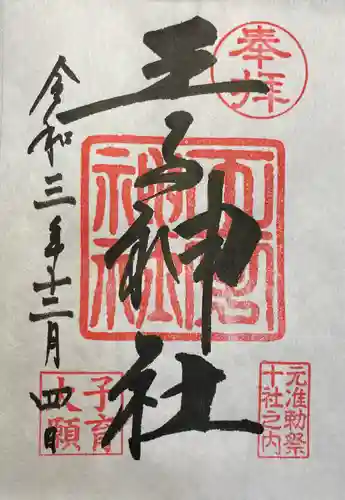 奉拝
王子神社
元准勅祭
十社之内
子育
大願
令和三年十二月四日